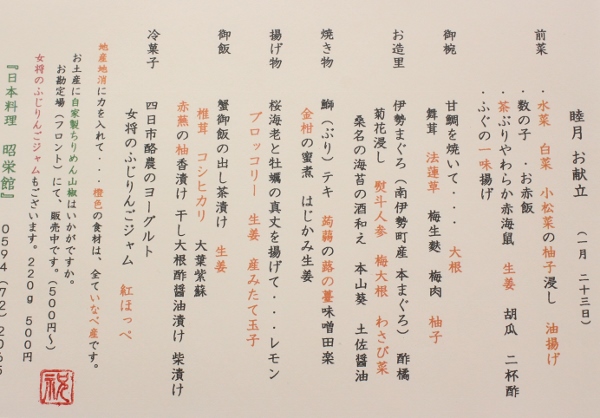 睦月 お献立 (一月 二十三日)
前菜
・水菜 白菜 小松菜の柚子浸し 油揚げ
・数の子 ・お赤飯
・茶ぶりやわらか赤海鼠 生姜 胡瓜 二杯酢
・ふぐの一味揚げ
御椀
甘鯛を焼いて・・・ 大根
舞茸 法蓮草 梅生麩 梅肉 柚子
お造里
伊勢まぐろ(南伊勢町産 本まぐろ) 酢橘
菊花浸し 熨斗人参 梅大根 わさび菜
桑名の海苔の酒和え 本山葵 土佐醤油
焼き物
鰤(ぶり)テキ 蒟蒻の蕗の薹味噌田楽
金柑の蜜煮 はじかみ生姜
揚げ物
桜海老と牡蠣の真丈を揚げて・・・レモン
ブロッコリー 生姜 産みたて玉子
御飯
蟹御飯の出し茶漬け 生姜
椎茸 コシヒカリ 大葉紫蘇
赤蕪の柚香漬け 干し大根酢醤油漬け 柴漬け
冷菓子
四日市酪農のヨーグルト
女将のふじりんごジャム 紅ほっぺ
地産地消に力を入れて・・・橙色の食材は、全ていなべ産です。
お土産に自家製ちりめん山椒はいかがですか。
お勘定場(フロント)にて、販売中です。(500円~)
女将のふじりんごジャムもございます。220g 500円
『日本料理 昭栄館』 0594(72)2065
祝